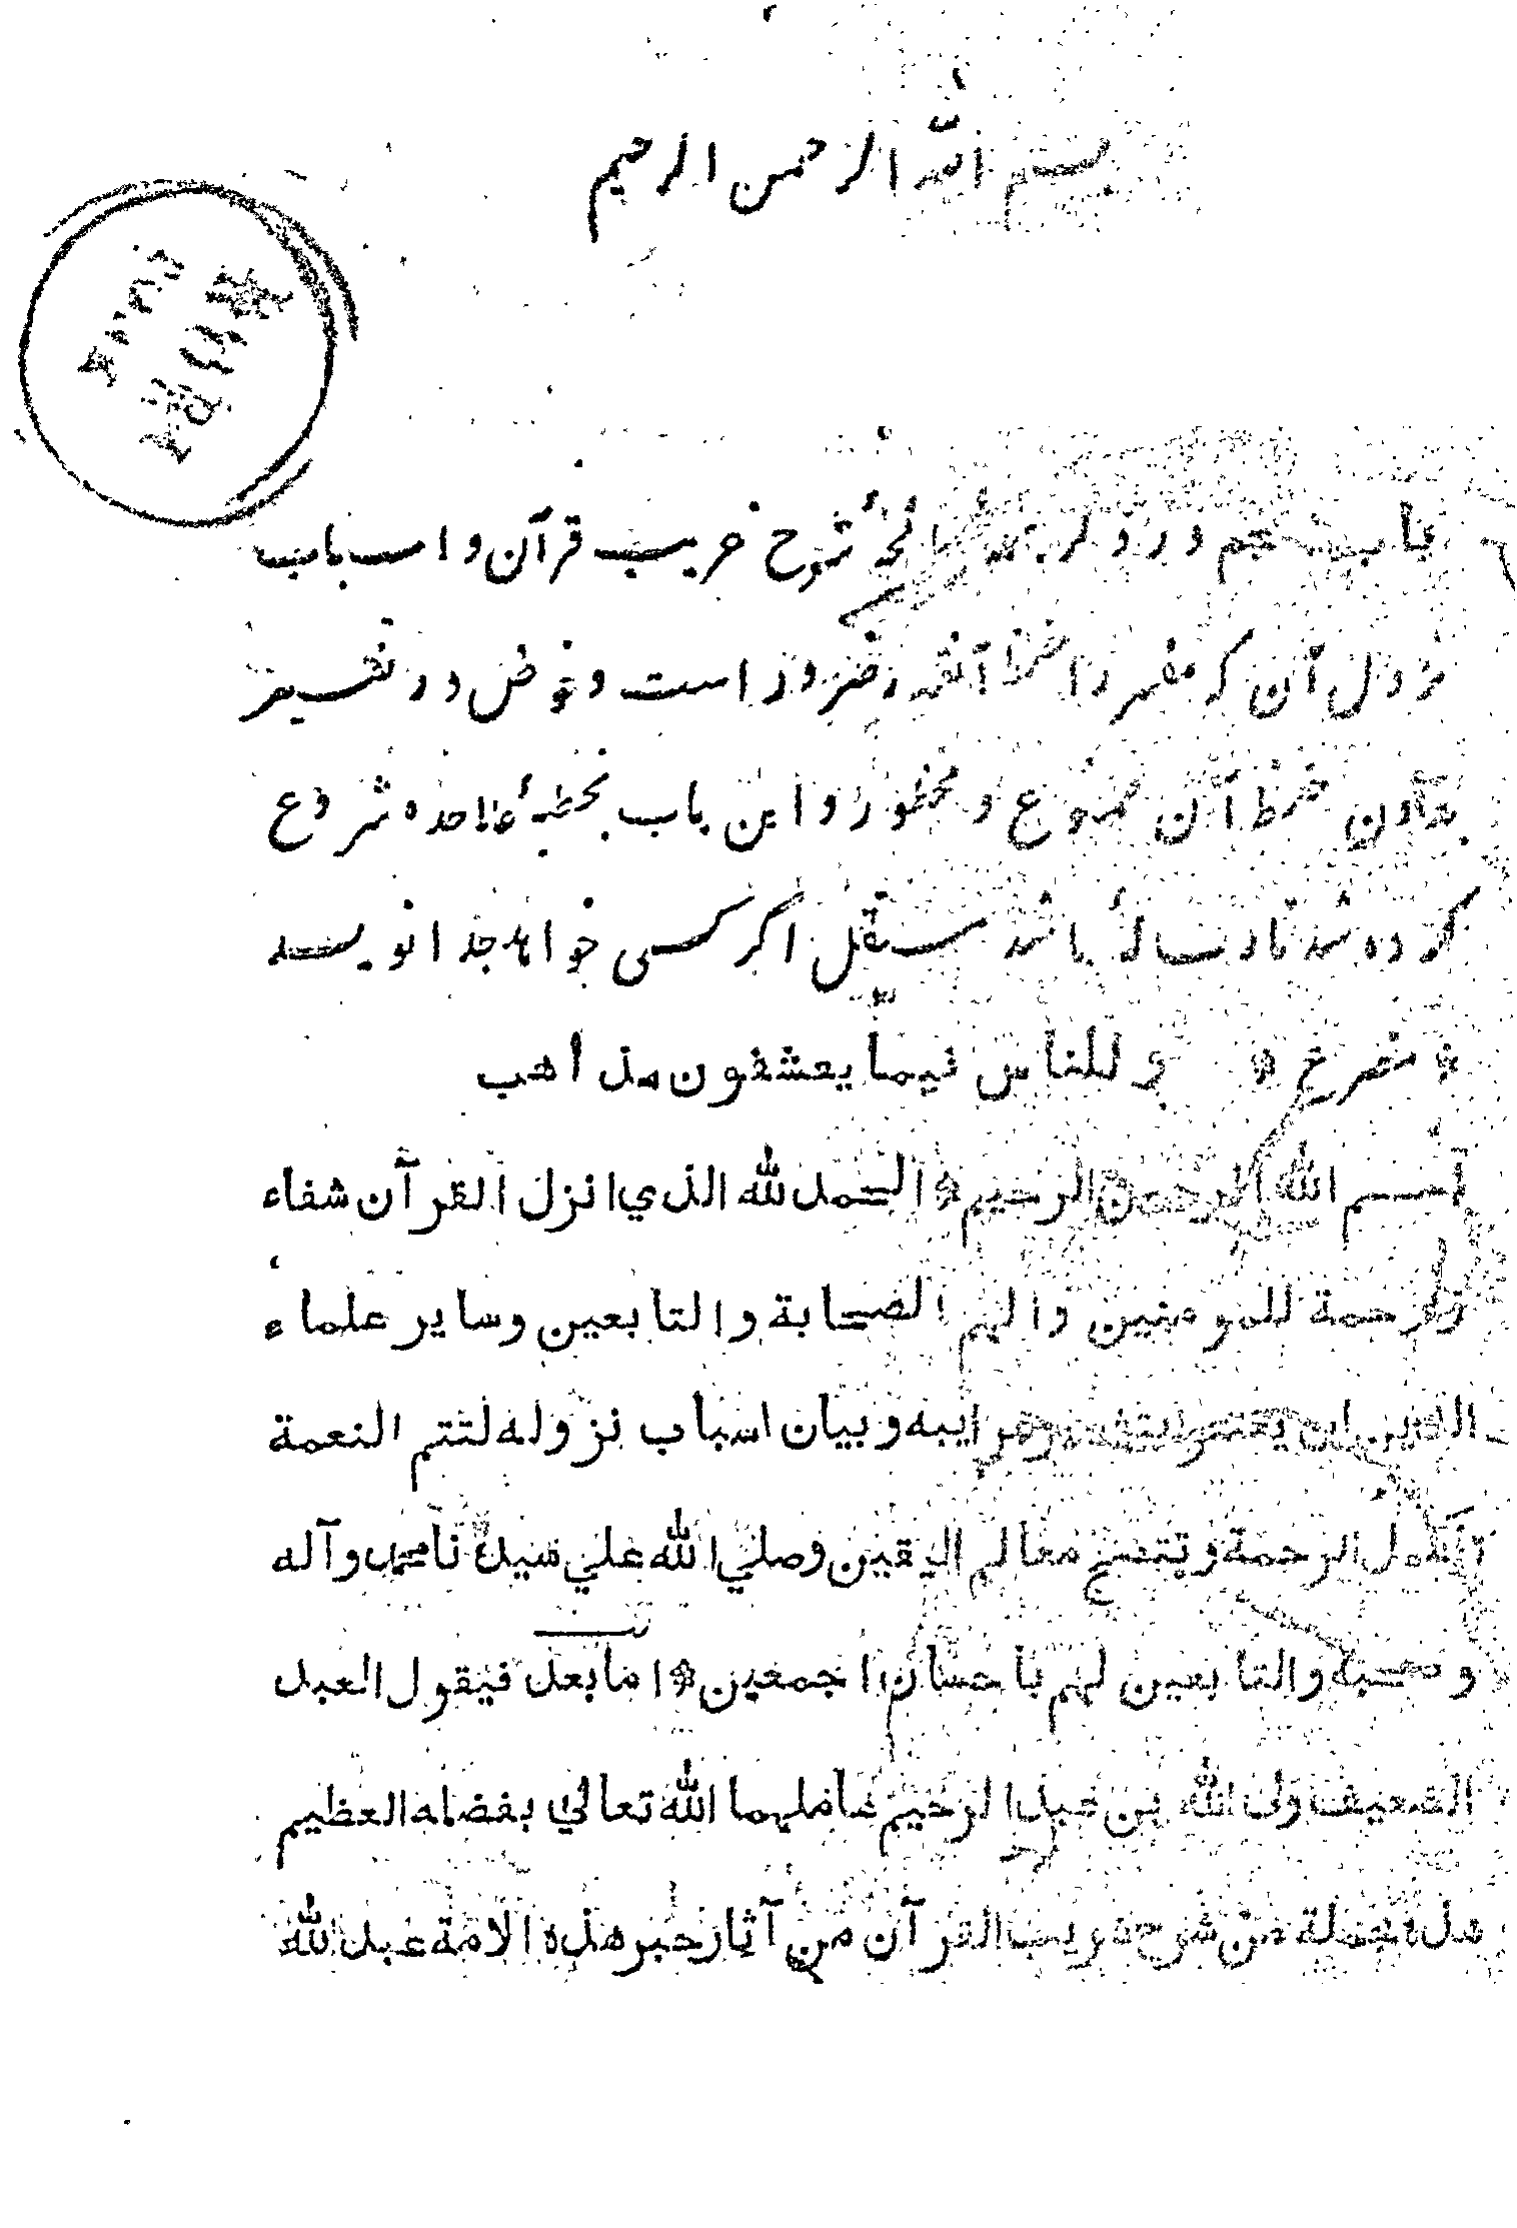 بسم الله الرحمن الرحيم
باب پنجم در ذكر جملهٔ صالحهٔ شرح غريب قرآن و اسباب
نزول آن كه مفسر را حفظ آنقدر ضرور است و خوض در تفسير
بدون حفظ آن ممنوع و محظور و اين باب بخطبهٔ علاحده شروع
كرده شد تا رسالهٔ باشد مستقل اگر كسى خواهد جدا نويسد
* مصرع * و للناس فيما يعشقون مذاهب
بسم الله الرحمن الرحيم * الحمد لله الذي انزل القرآن شفاء
ورحمة للمومنين والهم الصحابة والتابعين وساير علماء
الدين ان يعتنوا بشرح غرايبه وبيان اسباب نزوله لتتم النعمة
وتكمل الرحمة ويتضح معالم اليقين وصلي الله علي سيدنا محمد وآله
وصحبه والتابعين لهم باحسان اجمعين * اما بعد فيقول العبد
الضعيف ولي الله بن عبد الرحيم عاملهما الله تعالي بفضله العظيم
هذه جملة من شرح غريب القرآن من آثار حبر هذه الامة عبد الله